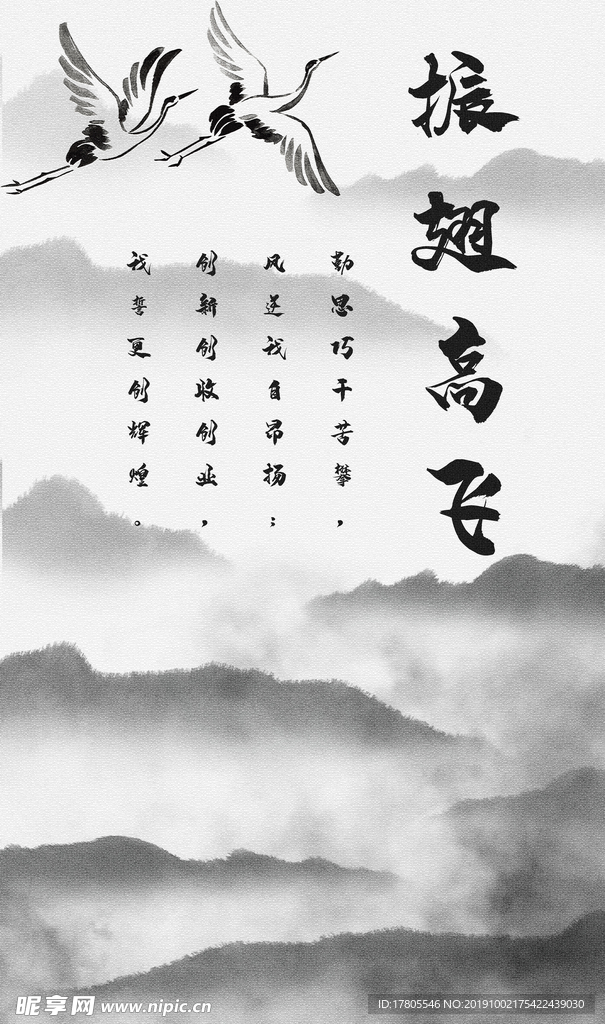 振翅高飞
勤思巧干苦攀，
风逆我自昂扬；
创新创收创业，
我誓更创辉煌。
昵享网 www.nipic.cn
ID:17805546 NO:20191002175422439030